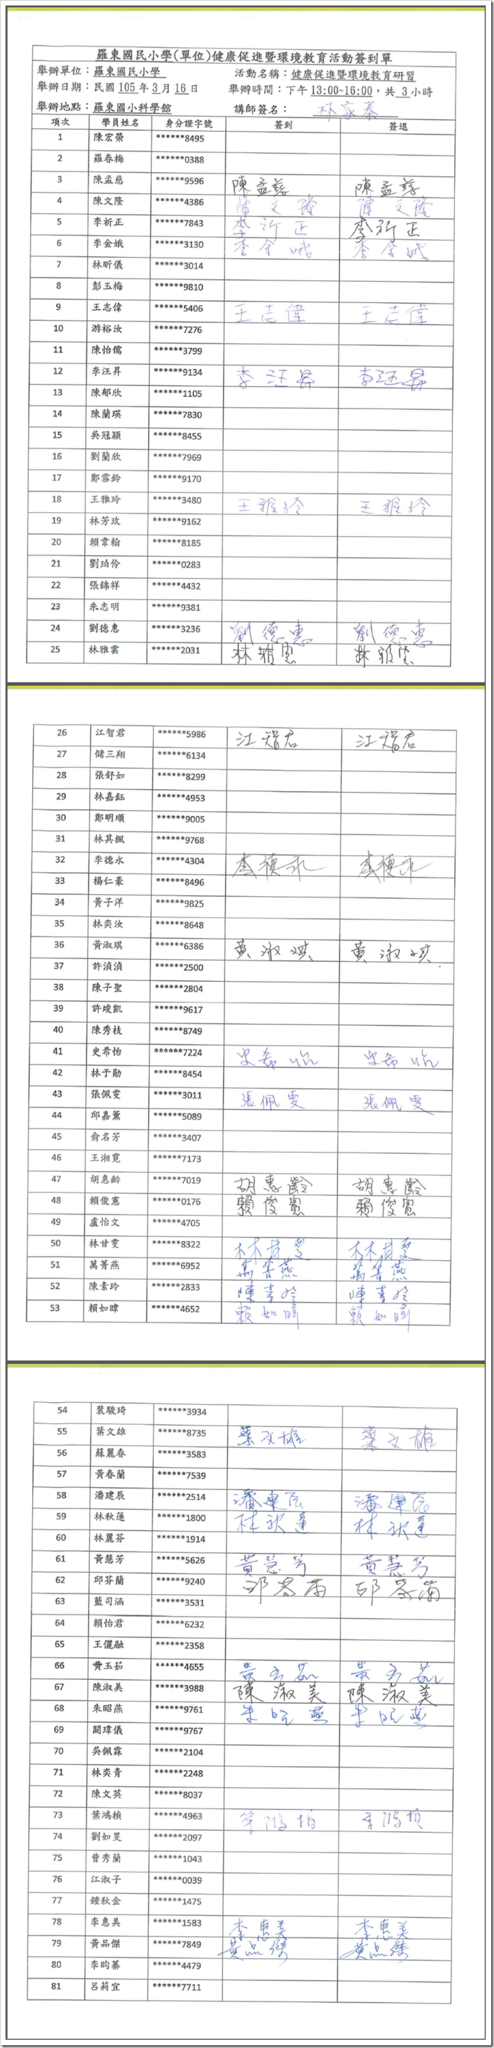 羅東國民小學(單位)健康促進暨環境教育活動簽到單
舉辦單位：羅東國民小學 活動名稱：健康促進暨環境教育研習
舉辦日期：民國 105年3月16日 舉辦時間：下午 13:00~16:00，共 3小時
舉辦地點：羅東國小科學館 講師簽名：林家泰
項次 學員姓名 身分證字號 簽到 簽退
1 陳宏榮 ******8495
2 羅春梅 ******0388
3 陳孟慈 ******9596 陳孟慈 陳孟慈
4 陳文隆 ******4386 陳文隆 陳文隆
5 李祈正 ******7843 李祈正 李祈正
6 李金娥 ******3130 李金娥 李金娥
7 林昕儀 ******3014
8 彭玉梅 ******9810
9 王志偉 ******5406 王志偉 王志偉
10 游裕汝 ******7276
11 陳怡儒 ******3799
12 李汪昇 ******9134 李汪昇 李汪昇
13 陳郁欣 ******1105
14 陳蘭瑛 ******7830
15 吳冠穎 ******8455
16 劉蘭欣 ******7969
17 鄭雪鈴 ******9170
18 王雅玲 ******3480 王雅玲 王雅玲
19 林芳玫 ******9162
20 賴韋翰 ******8185
21 劉珀伶 ******0283
22 張錦祥 ******4432
23 朱志明 ******9381
24 劉德惠 ******3236 劉德惠 劉德惠
25 林雅雲 ******2031 林雅雲 林雅雲
26 江智君 ******5986 江智君 江智君
27 儲三翔 ******6134
28 張舒如 ******8299
29 林嘉鈺 ******4953
30 鄭明順 ******9005
31 林其楓 ******9768
32 李德永 ******4304 李德永 李德永
33 楊仁豪 ******8496
34 黃子洋 ******9825
35 林奕汝 ******8648
36 黃淑琪 ******6386 黃淑琪 黃淑琪
37 許湞湞 ******2500
38 陳子聖 ******2804
39 許竣凱 ******9617
40 陳秀枝 ******8749
41 史希怡 ******7224 史希怡 史希怡
42 林于勛 ******8454
43 張佩雯 ******3011 張佩雯 張佩雯
44 邱嘉薰 ******5089
45 俞名芳 ******3407
46 王湘霓 ******7173
47 胡惠齡 ******7019 胡惠齡 胡惠齡
48 賴俊憲 ******0176 賴俊憲 賴俊憲
49 盧怡文 ******4705
50 林甘雯 ******8322 林甘雯 林甘雯
51 萬菁燕 ******6952 萬菁燕 萬菁燕
52 陳素玲 ******2833 陳素玲 陳素玲
53 賴如暐 ******4652 賴如暐 賴如暐
54 裴駿琦 ******3934
55 葉文雄 ******8735 葉文雄 葉文雄
56 蘇麗春 ******3583
57 黃春蘭 ******7539
58 潘建辰 ******2514 潘建辰 潘建辰
59 林秋蓮 ******1800 林秋蓮 林秋蓮
60 林麗芬 ******1914
61 黃慧芳 ******5626 黃慧芳 黃慧芳
62 邱芬蘭 ******9240 邱芬蘭 邱芬蘭
63 藍司涵 ******3531
64 賴怡君 ******6232
65 王儷融 ******2358
66 費玉茹 ******4655 費玉茹 費玉茹
67 陳淑美 ******3988 陳淑美 陳淑美
68 朱昭燕 ******9761 朱昭燕 朱昭燕
69 闕瑋儀 ******9767
70 吳佩霖 ******2104
71 林奕青 ******2248
72 陳文英 ******8037
73 葉鴻楨 ******4963 葉鴻楨 葉鴻楨
74 劉如旻 ******2097
75 曾秀蘭 ******1043
76 江淑子 ******0039
77 鍾秋金 ******1475
78 李惠美 ******1583 李惠美 李惠美
79 黃品傑 ******7849 黃品傑 黃品傑
80 李昀蓁 ******4479
81 呂莉宜 ******7711